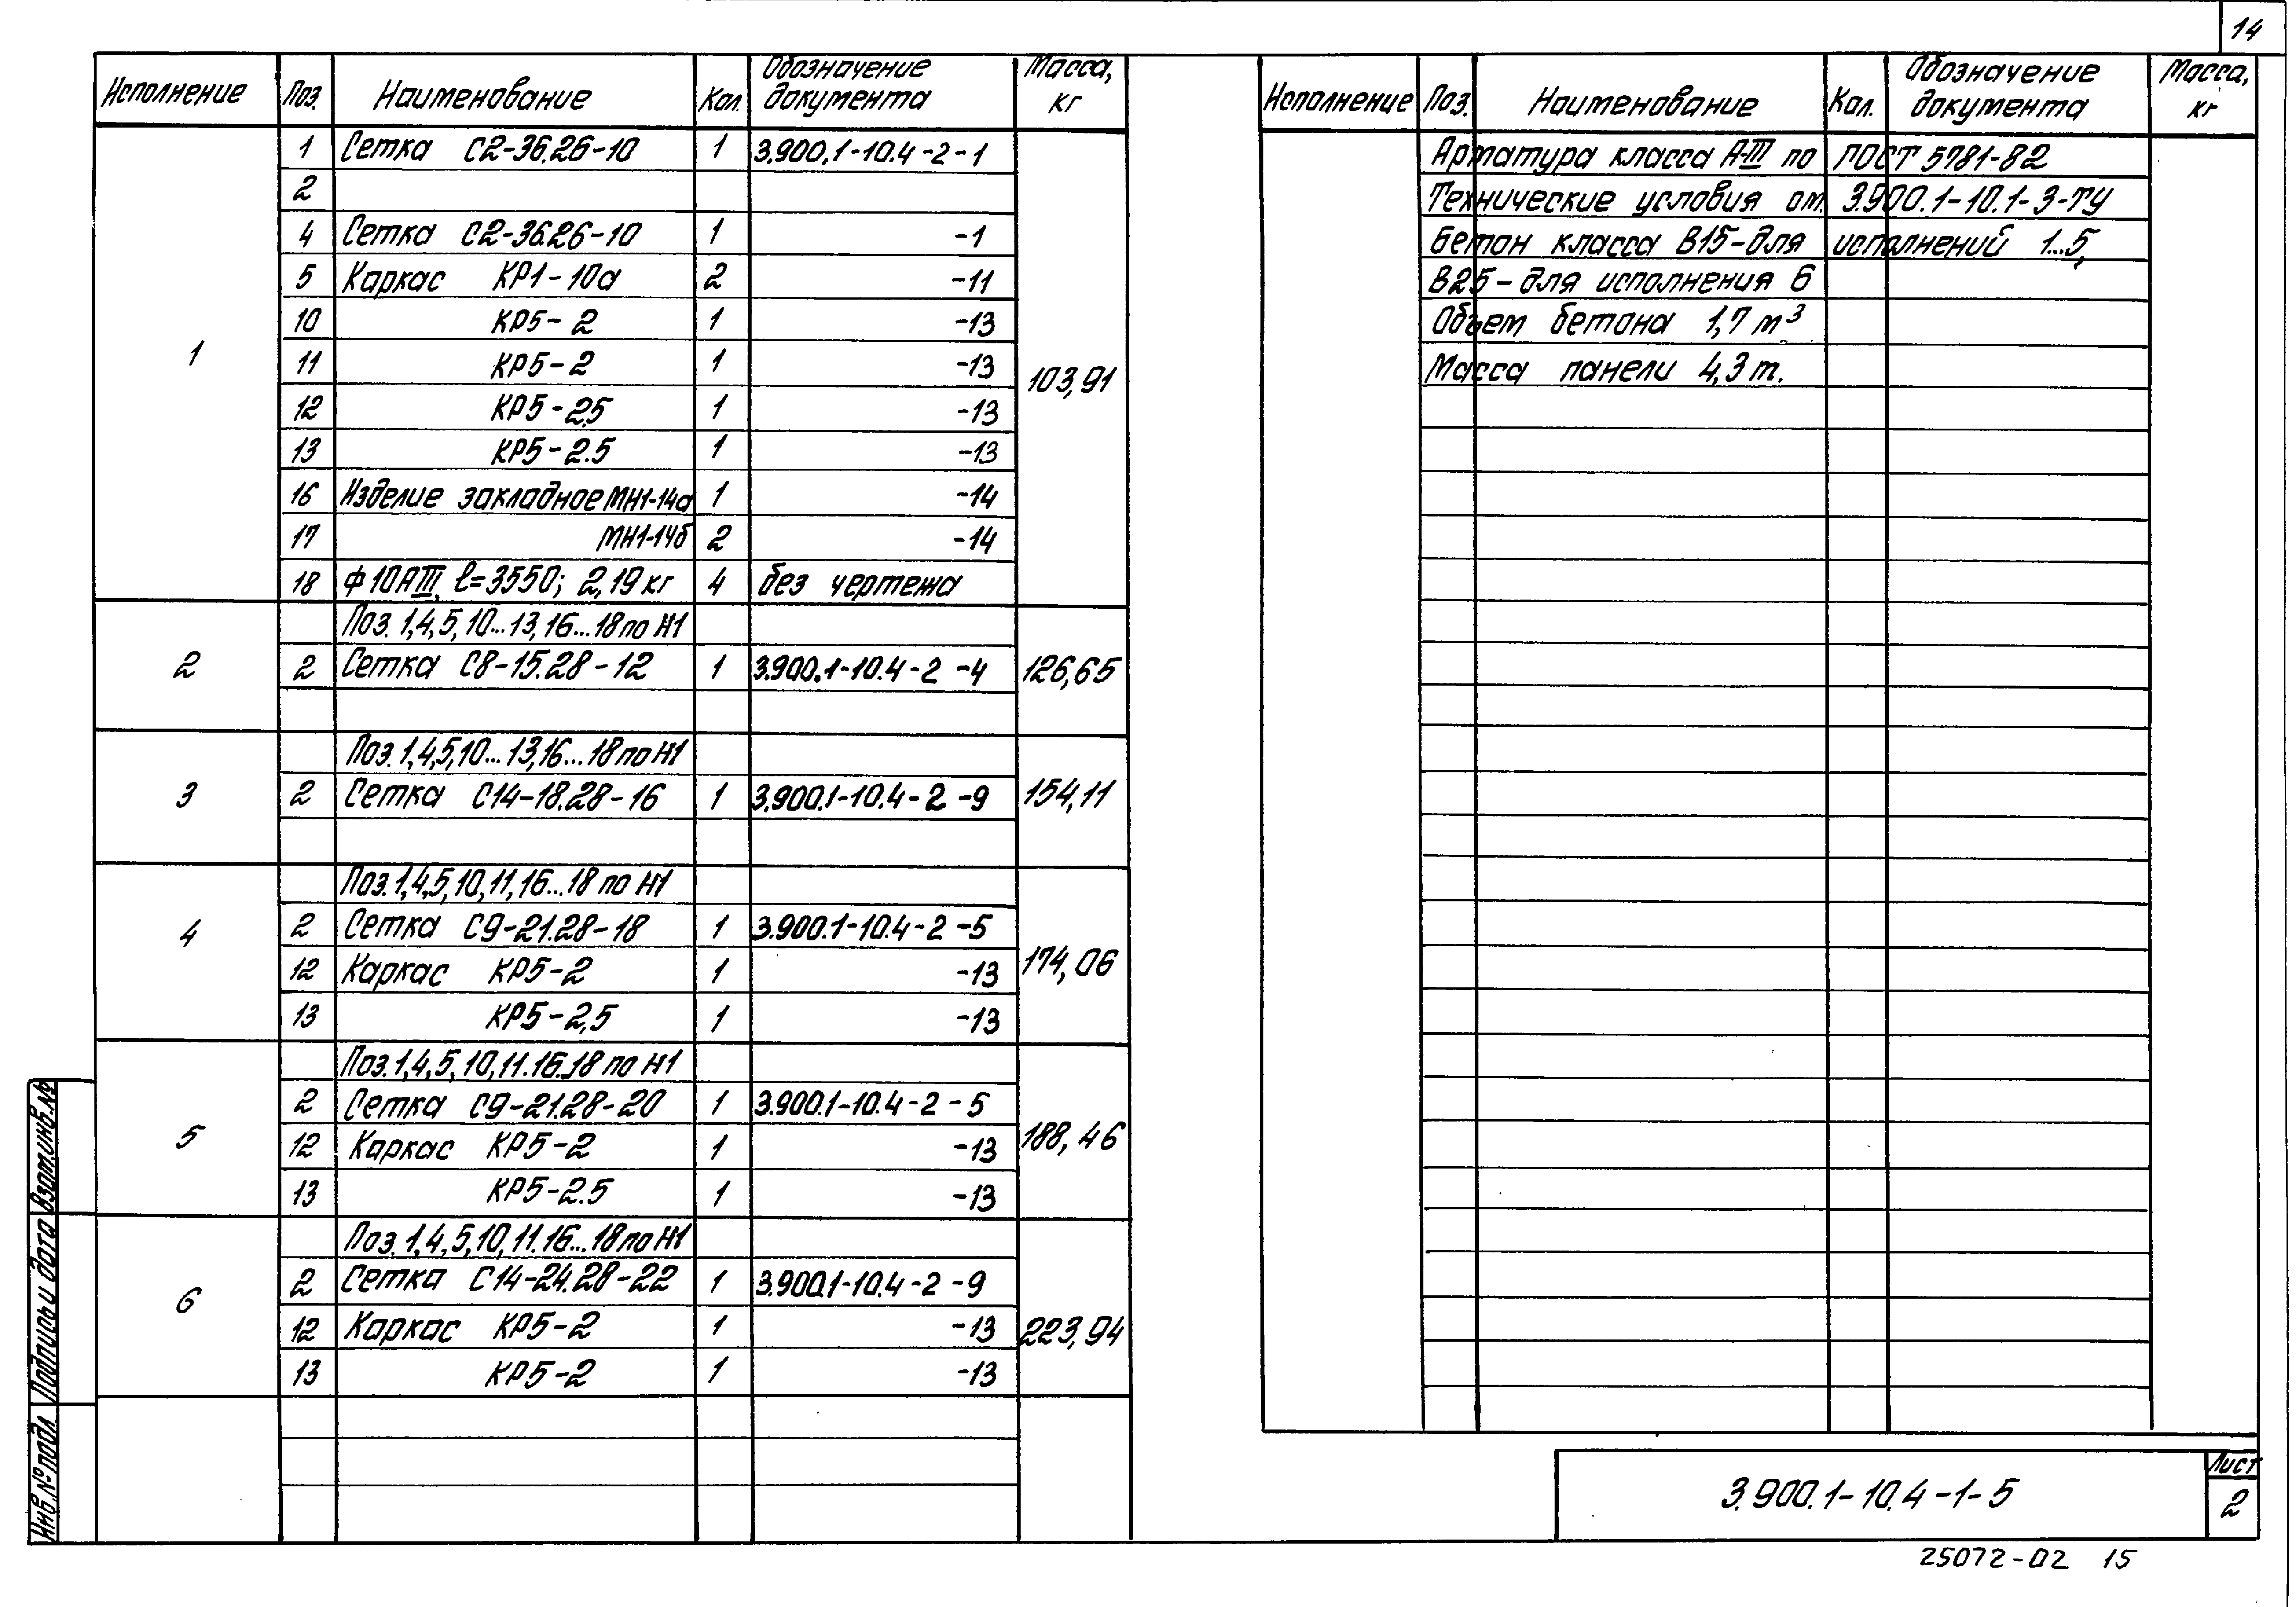 14
Исполнение Поз. Наименование Кол. Обозначение документа Масса, кг
1 1 Сетка С2-36.26-10 1 3.900.1-10.4-2-1 103,91
2
4 Сетка С2-36.26-10 1 -1
5 Каркас КР1-10а 2 -11
10 КР5-2 1 -13
11 КР5-2 1 -13
12 КР5-2.5 1 -13
13 КР5-2.5 1 -13
16 Изделие закладное МН1-14а 1 -14
17 МН1-14б 2 -14
18 Ф10АIII, ℓ=3550; 2,19 кг 4 без чертежа
2 Поз. 1,4,5,10...13,16...18 по И1 126,65
2 Сетка С8-15.28-12 1 3.900.1-10.4-2-4
3 Поз. 1,4,5,10...13,16...18 по И1 154,11
2 Сетка С14-18.28-16 1 3.900.1-10.4-2-9
4 Поз. 1,4,5,10,11,16...18 по И1 174,06
2 Сетка С9-21.28-18 1 3.900.1-10.4-2-5
12 Каркас КР5-2 1 -13
13 КР5-2,5 1 -13
5 Поз. 1,4,5,10,11.16..18 по И1 188,46
2 Сетка С9-21.28-20 1 3.900.1-10.4-2-5
12 Каркас КР5-2 1 -13
13 КР5-2.5 1 -13
6 Поз. 1,4,5,10,11.16...18 по И1 223,94
2 Сетка С14-24.28-22 1 3.900.1-10.4-2-9
12 Каркас КР5-2 1 -13
13 КР5-2 1 -13
Исполнение Поз. Наименование Кол. Обозначение документа Масса, кг
Арматура класса А-III по ГОСТ 5781-82
Технические условия см. 3.900.1-10.1-3-ТУ
Бетон класса В15-для исполнений 1...5,
В25-для исполнения 6
Объем бетона 1,7 м³
Масса панели 4,3 т.
Инв.№ подл Подпись и дата Взам.инв.№
3.900.1-10.4-1-5
Лист
2
25072-02 15